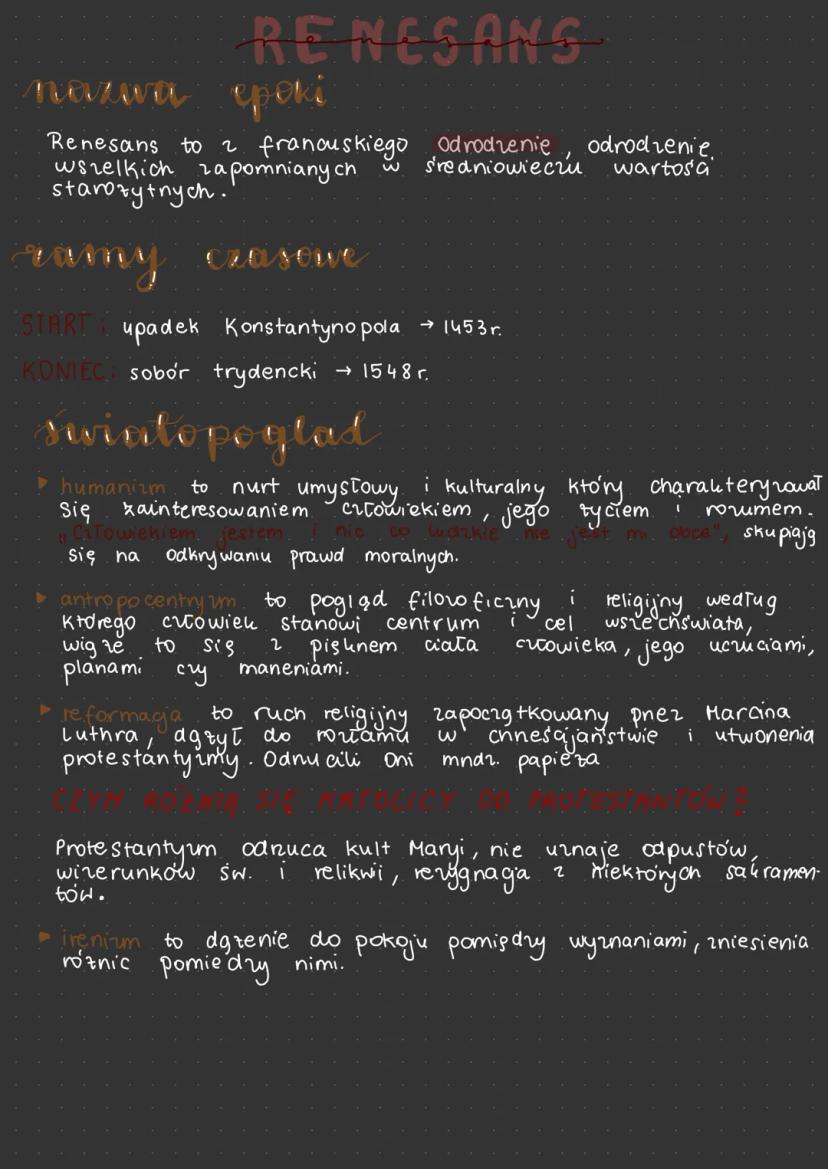 RENESANS
nazwa epoki
Renesans to z francuskiego Odrodzenie, odrodzenie
wszelkich zapomnianych w średniowieczu wartości
starożytnych.
ramy czasowe
START: upadek Konstantynopola → 1453r.
KONIEC: sobór trydencki → 1548r.
światopogląd
▸ humanizm to nurt umysłowy i kulturalny który charakteryzował
się zainteresowaniem człowiekiem, jego życiem i rozumem.
"Człowiekiem jestem i nic co ludzkie nie jest mi obce", skupiają
się na odkrywaniu prawd moralnych.
▸ antropocentryzm to pogląd filozoficzny i religijny według
którego człowiek stanowi centrum i cel wszechświata,
wiąże to się z pięknem ciała człowieka, jego uczuciami,
planami czy marzeniami.
▸ reformacja to ruch religijny zapoczątkowany przez Marcina
Luthra, dążył do rozłamu w chrześcijaństwie i utworzenia
protestantyzmy. Odrzucili oni mndz. papieża
CZYM RÓŻNIĄ SIĘ KATOLICY DO PROTESTANTÓW?
Protestantyzm odrzuca kult Maryi, nie uznaje odpustów,
wizerunków św. i relikwi, rezygnacja z niektórych sakramen-
tów.
▸ irenizm to dążenie do pokoju pomiędzy wyznaniami, zniesienia
różnic pomiedzy nimi.